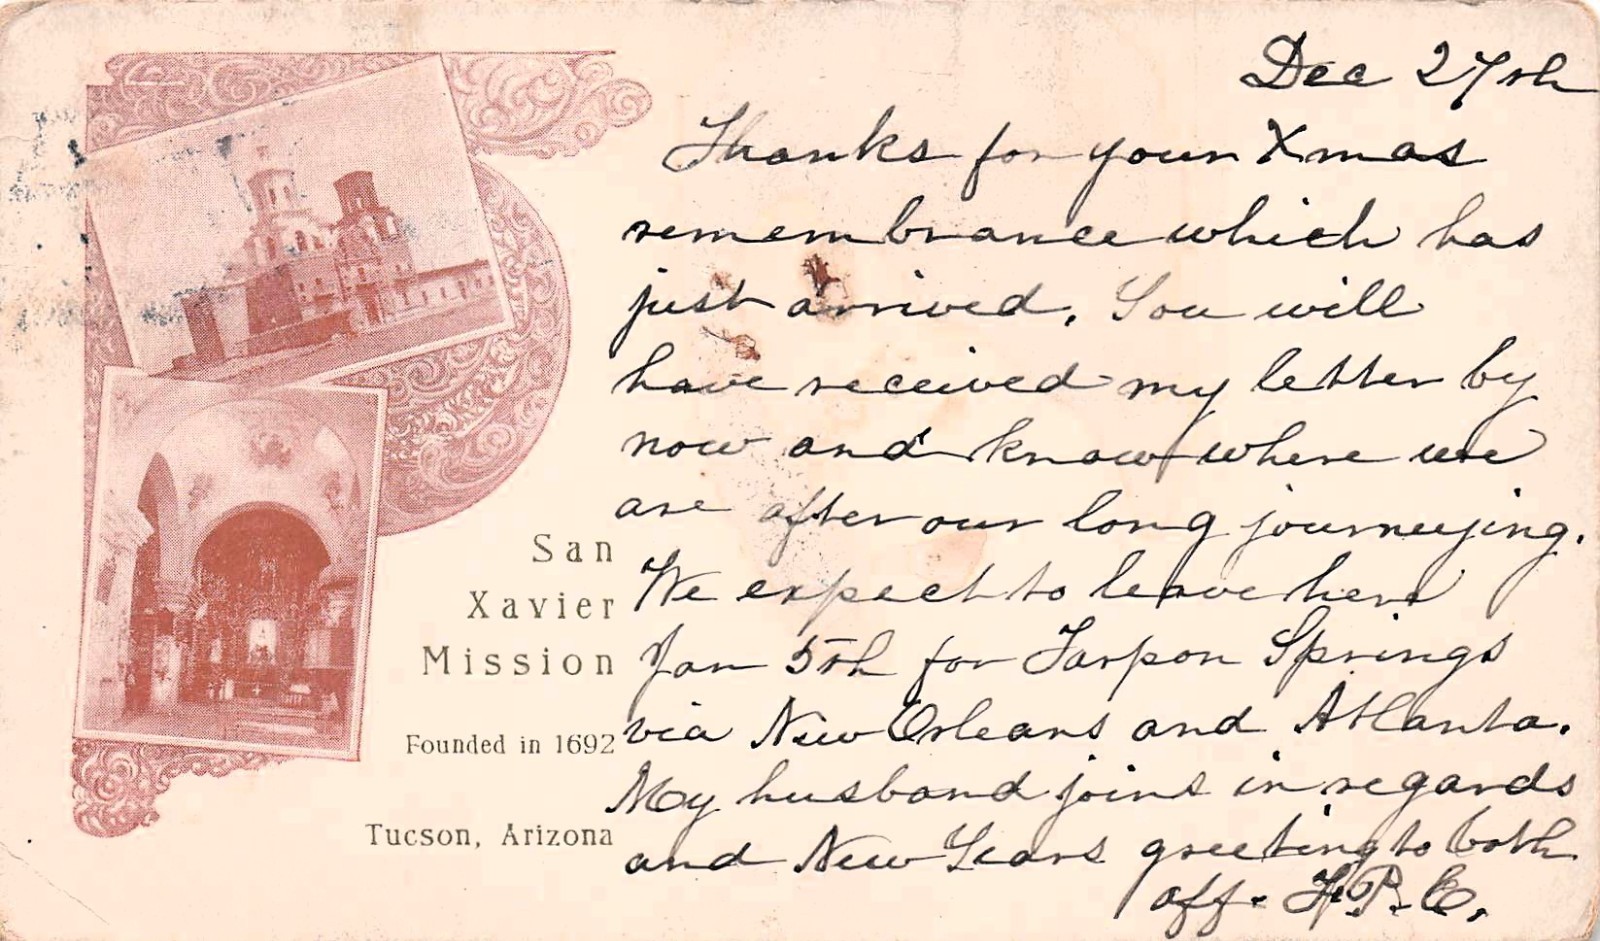 Dec 27th
Thanks for your Xmas
remembrance which has
just arrived. You will
have received my letter by
now and know where we
are after our long journeying.
We expect to leave here
Jan 5th for Tarpon Springs
via New Orleans and Atlanta.
My husband joins in regards
and New Years greeting to both
aff. H.P.E.
San
Xavier
Mission
Founded in 1692
Tucson, Arizona